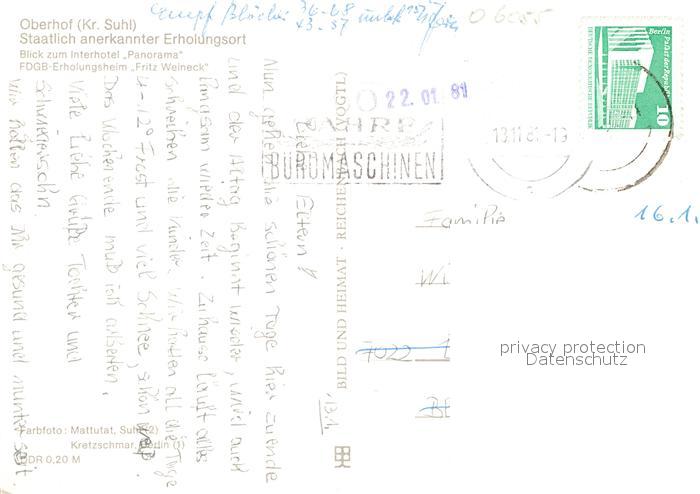 Oberhof (Kr. Suhl)
Staatlich anerkannter Erholungsort
Blick zum Interhotel „Panorama"
FDGB-Erholungsheim „Fritz Weineck"
36-68
43-57
O 6055
Berlin Palast der Republik
DEUTSCHE DEMOKRATISCHE REPUBLIK
10
22. 01. 81
JAHRE
BÜROMASCHINEN
13.11.8 -19
Liebe Eltern!
Nun gehen die schönen Tage hier zuende
und der Alltag beginnt wieder, wird auch
langsam wieder Zeit. Zuhause läuft alles
schreiben die Kinder. Wir hatten all die Tage
4-12° Frost und viel Schnee, schön weiß.
Das Wochenende muß ich arbeiten.
Viele liebe Grüße Tochter und
Schwiegersohn.
Wir hoffen das Ihr gesund und munter seit.
BILD UND HEIMAT · REICHENBACH (VOGTL)
13.1.
Familie
16.1.
Wi
7022
privacy protection
Datenschutz
Farbfoto: Mattutat, Suhl (2)
Kretzschmar, Berlin (1)
DDR 0,20 M